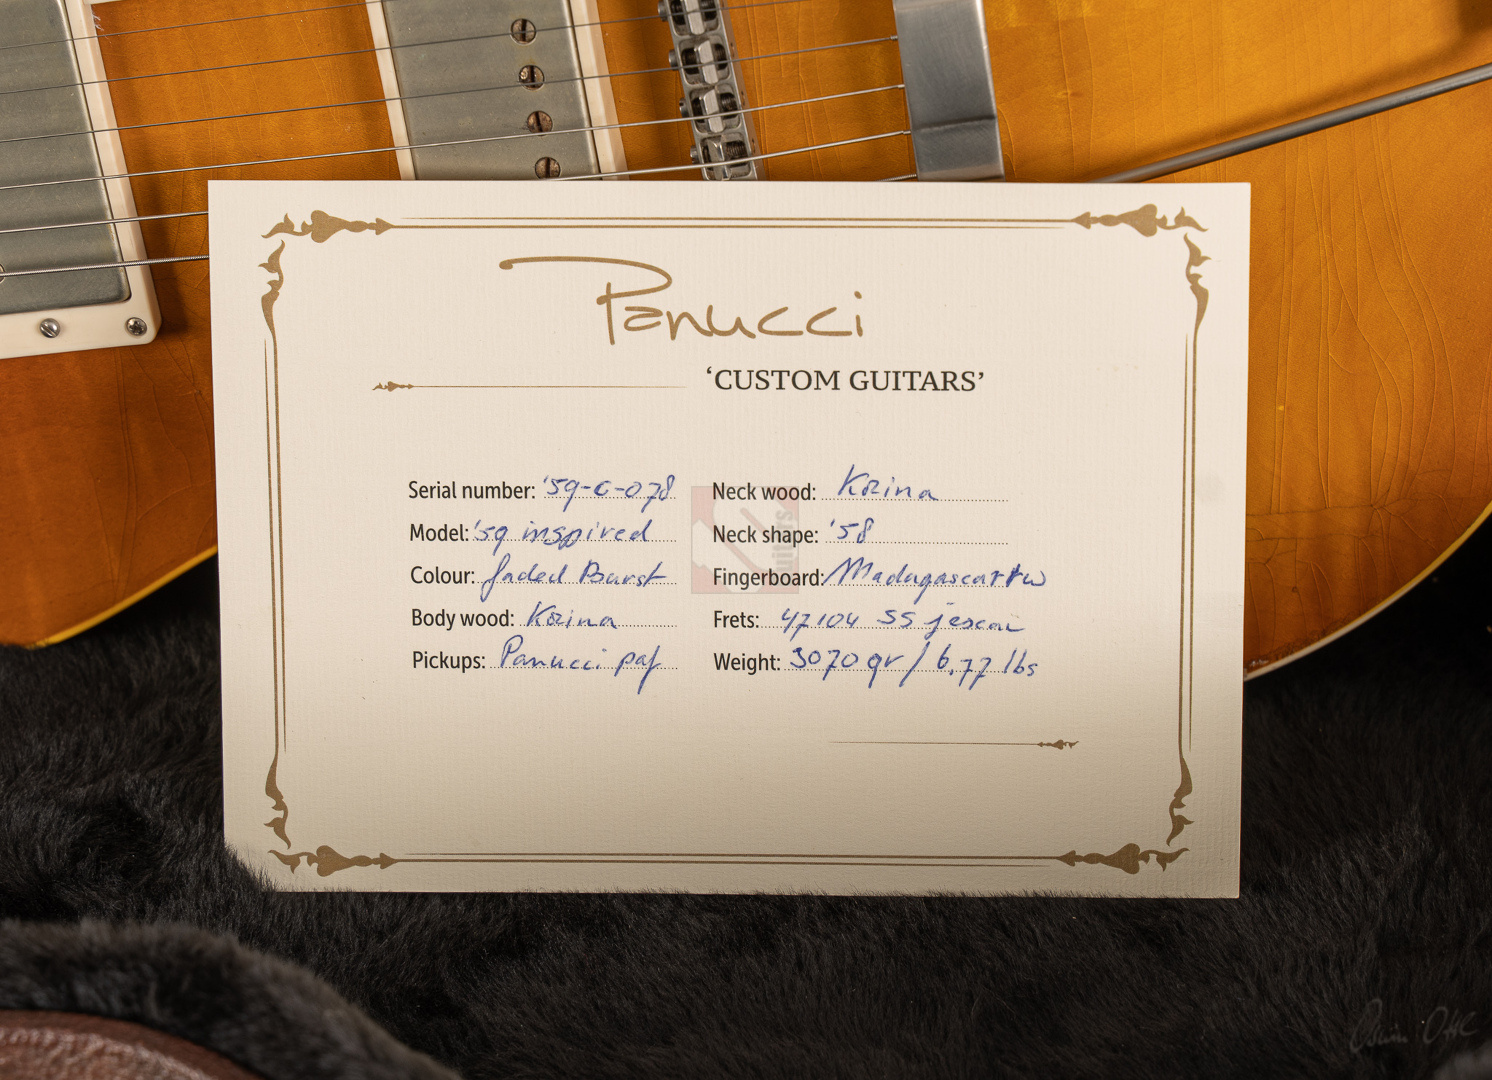 Panucci
‘CUSTOM GUITARS’
Serial number: '59-C-078
Model: '59 inspired
Colour: faded Burst
Body wood: Korina
Pickups: Panucci paf
Neck wood: Korina
Neck shape: '58
Fingerboard: Madagascar rw
Frets: 47104 SS jescar
Weight: 3070 gr / 6,77 lbs
guitars